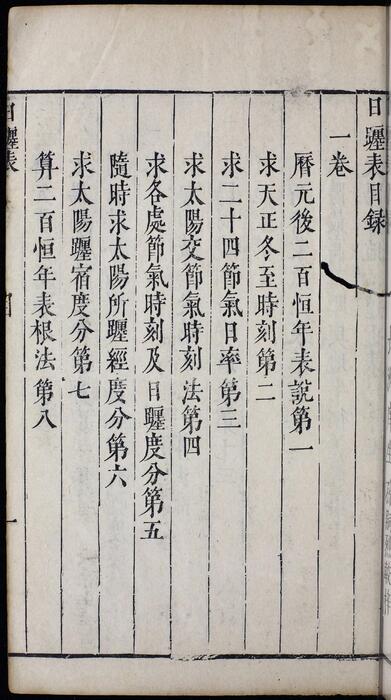 日躔表目録
一卷
曆元後二百恒年表說第一
求天正冬至時刻第二
求二十四節氣日率第三
求太陽交節氣時刻法第四
求各處節氣時刻及日躔度分第五
隨時求太陽所躔經度分第六
求太陽躔宿度分第七
算二百恒年表根法第八
日躔表
一